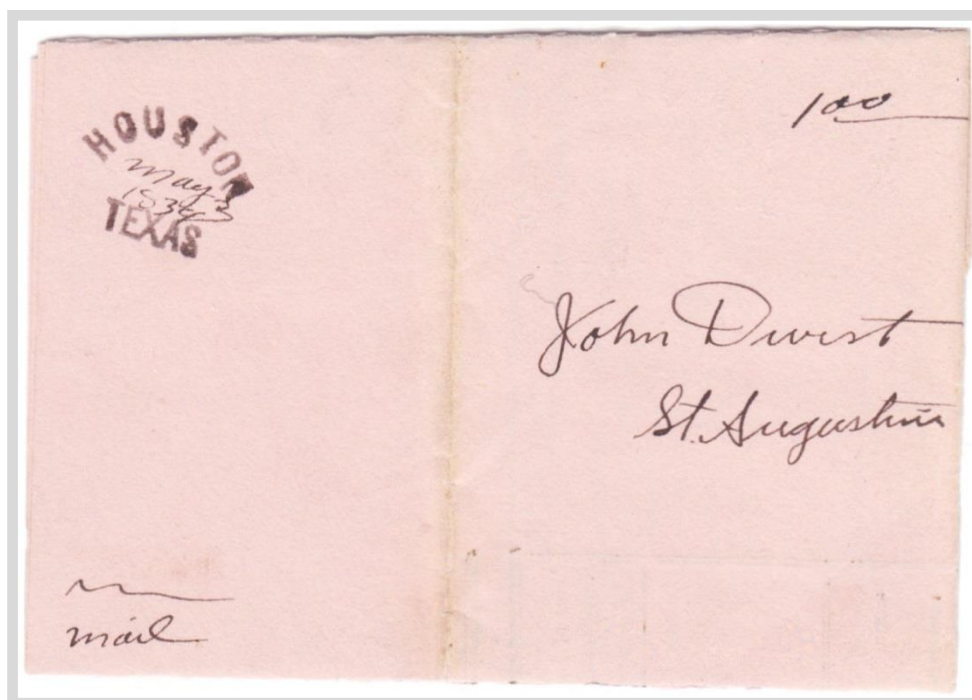 HOUSTON
May 3
TEXAS
100
John
St. Augustine
mail